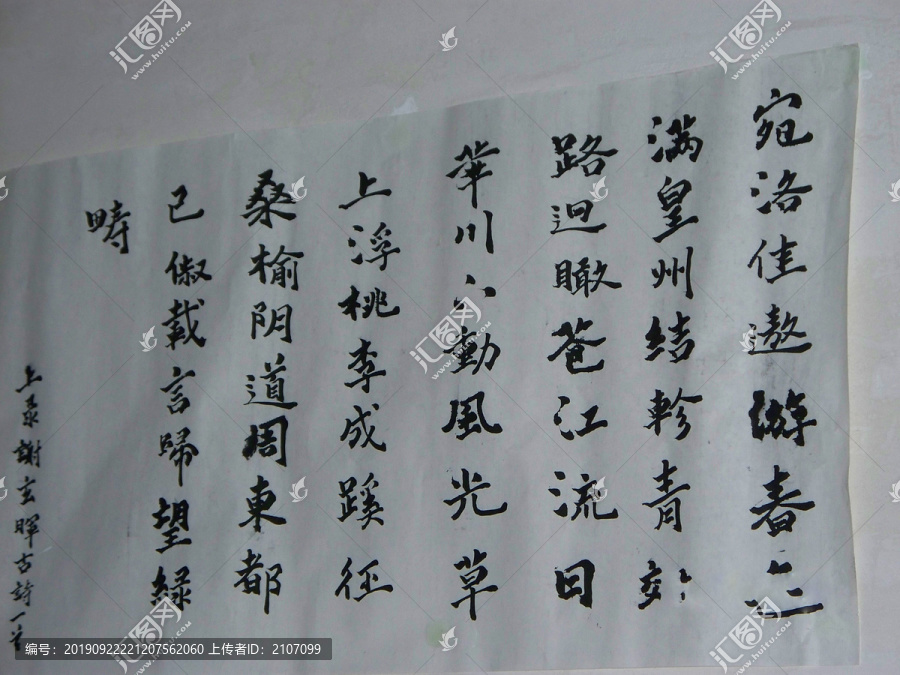 宛洛佳遨游春
满皇州结軫青
路迥瞰蒼江流日
華川動風光草
上浮桃李成蹊徑
桑榆阴道周東都
已俶載言歸望緑
畴
上录謝玄暉古詩一首
汇图网
www.huitu.com
编号：20190922221207562060 上传者ID：2107099